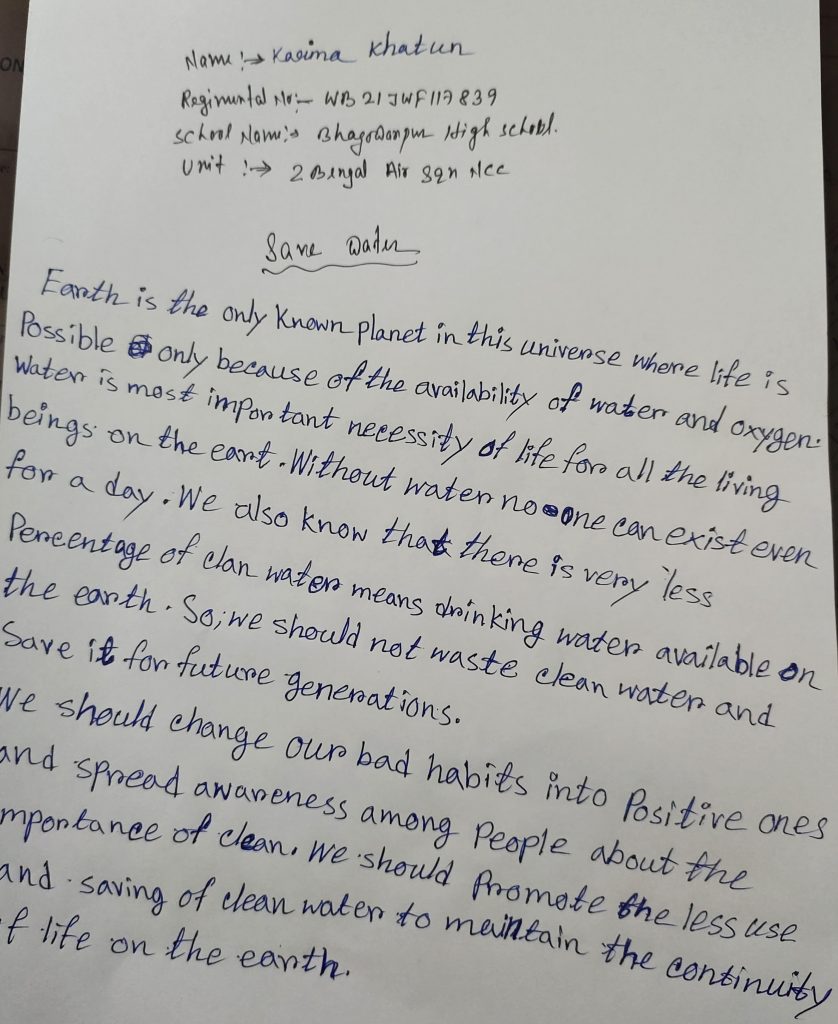 Name :→ Karima Khatun
Regimental No:- WB 21 JWF 117839
School Name:→ Bhagowanpur High school.
Unit :→ 2 Bengal Air Sqn Ncc
Save Water
Earth is the only Known planet in this universe where life is
Possible only because of the availability of water and oxygen.
Water is most important necessity of life for all the living
beings on the eart. Without water no one can exist even
for a day. We also know that there is very less
Percentage of clan water means drinking water available on
the earth. So, we should not waste clean water and
Save it for future generations.
We should change our bad habits into Positive ones
and spread awareness among People about the
mportance of clean. We should Promote the less use
and saving of clean water to maintain the continuity
f life on the earth.